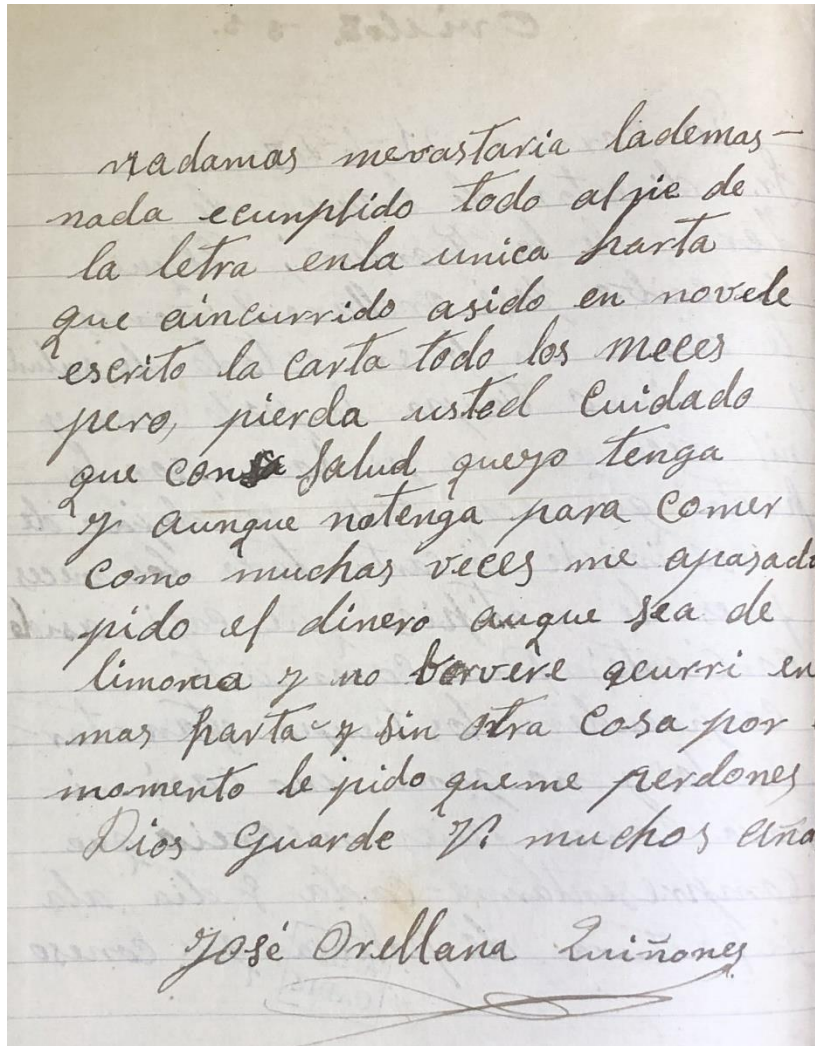 nadamas mevastaria lademas-
nada ecunplido todo alpie de
la letra enla unica harta
que aincurrido asido en novele
escrito la carta todo los meces
pero, pierda usted cuidado
que con salud queyo tenga
y aunque notenga para comer
como muchas veces me apasado
pido el dinero auque sea de
limorna y no borvere qcurri en
mas harta y sin otra cosa por
momento le pido queme perdones
Dios guarde V. muchos aña
José Orellana Quiñones